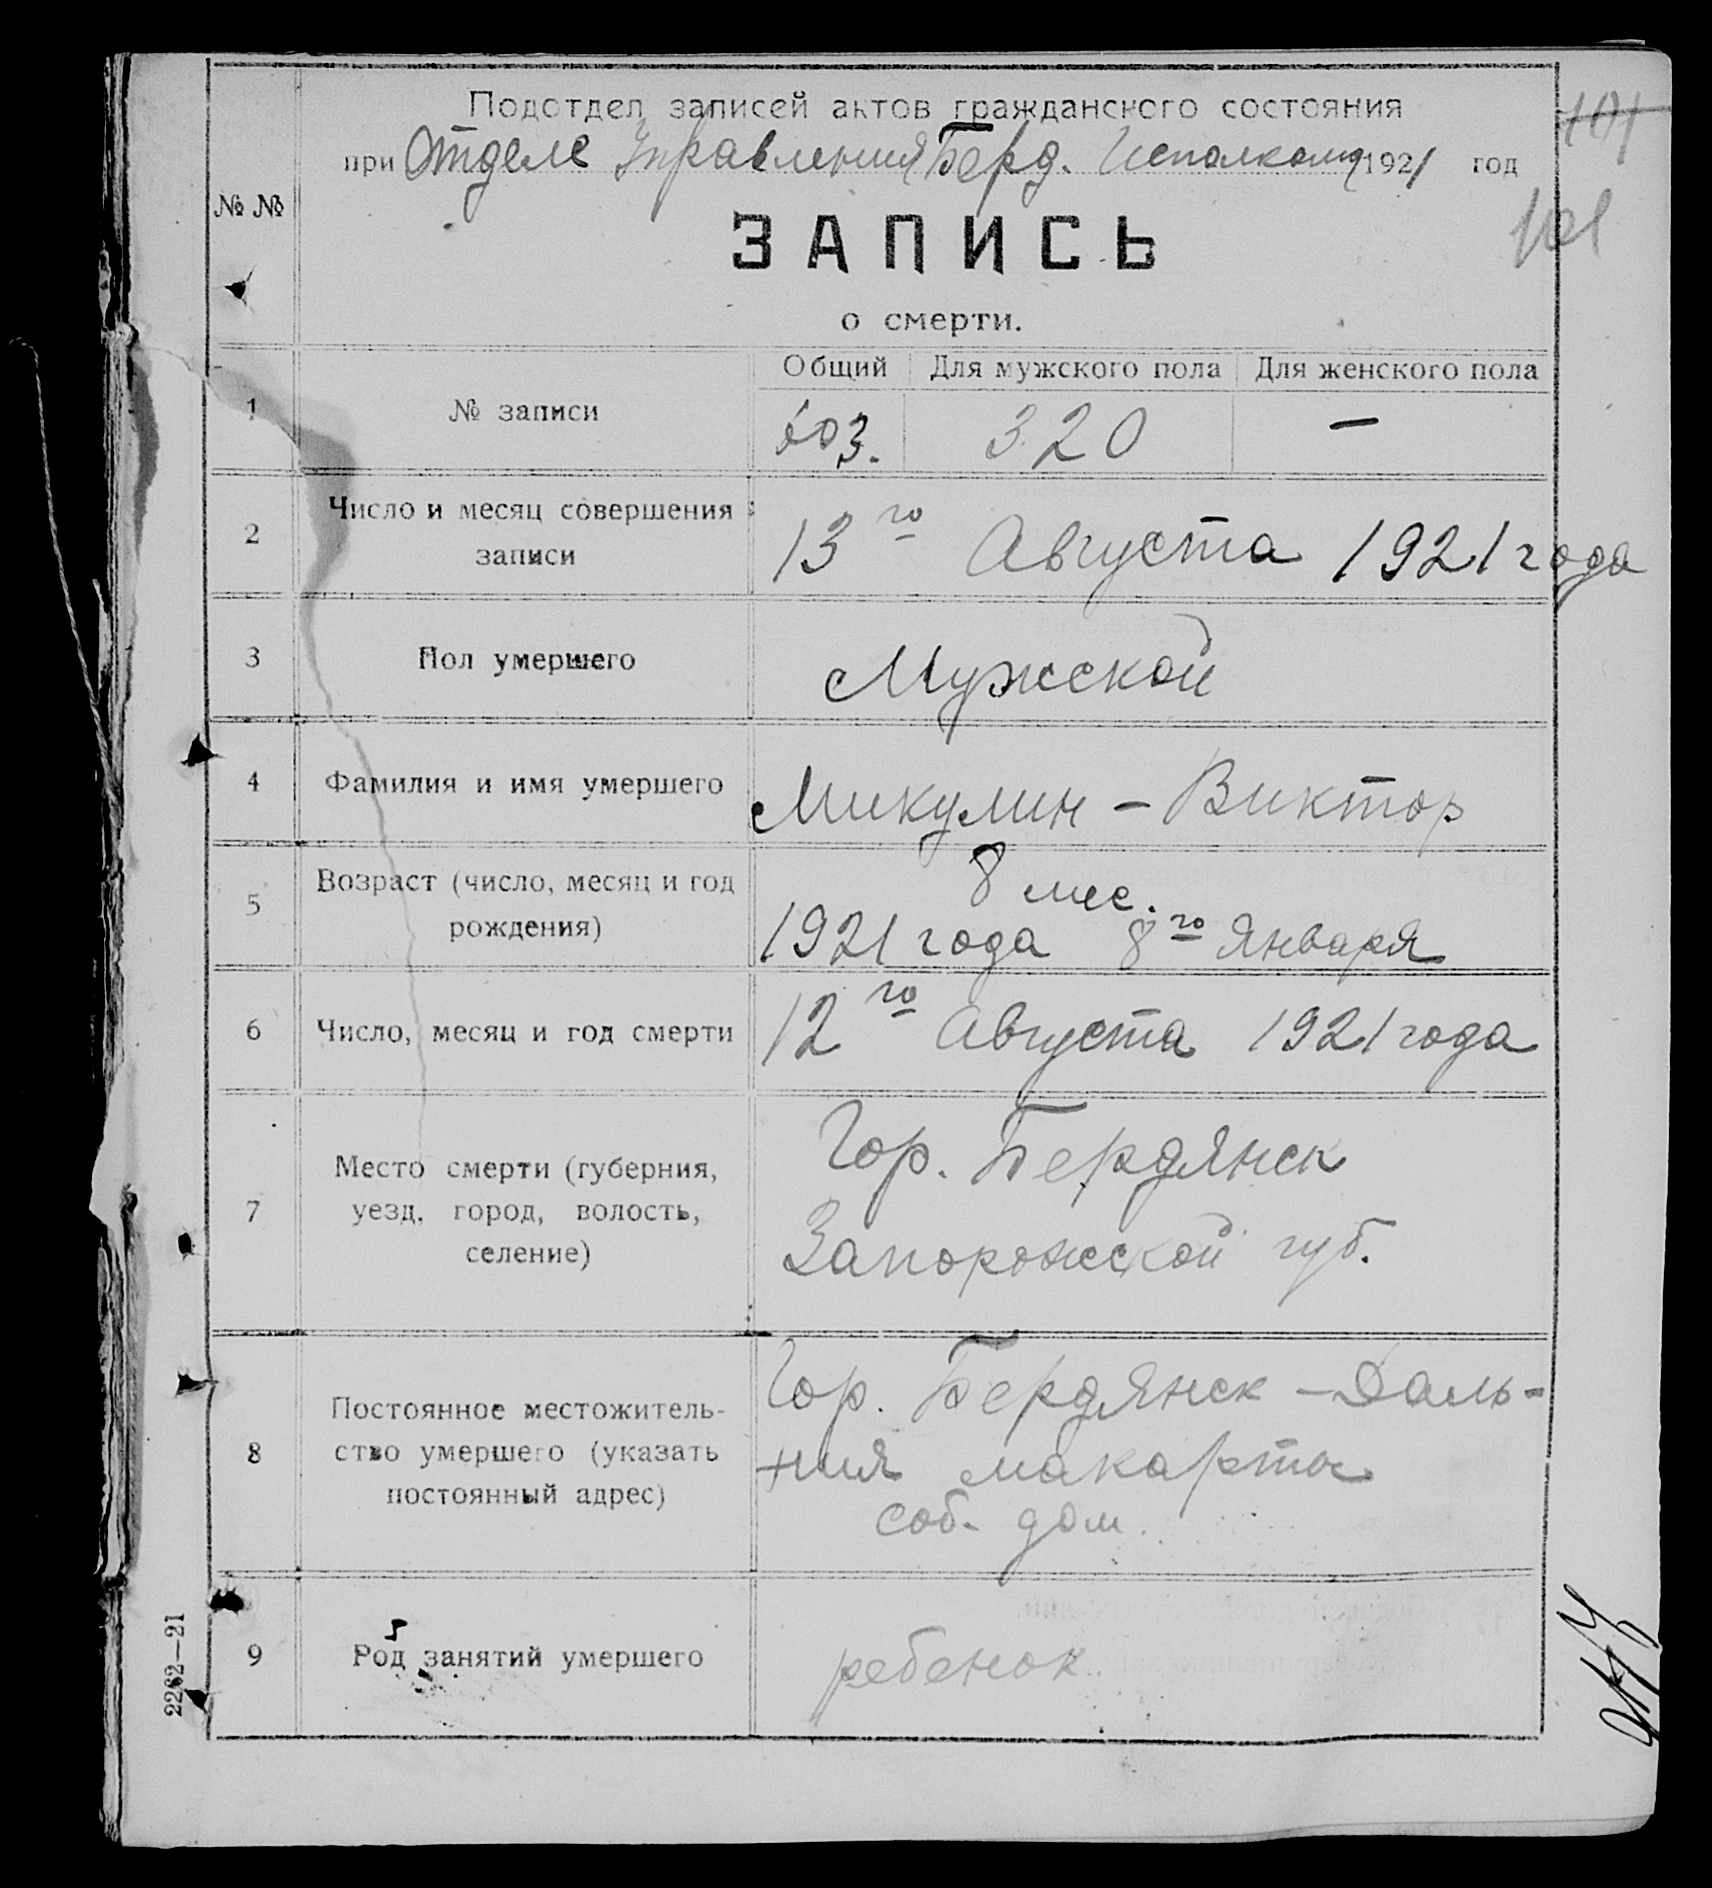 Подотдел записей актов гражданского состояния
при Отделе Управления Берд. Исполкома 1921 год
101
101
№ №
ЗАПИСЬ
о смерти.
Общий Для мужского пола Для женского пола
1 № записи 603. 320 —
2 Число и месяц совершения
записи
13го Августа 1921 года
3 Пол умершего Мужской
4 Фамилия и имя умершего Микулин – Виктор
5 Возраст (число, месяц и год
рождения)
8 мес.
1921 года 8го Января
6 Число, месяц и год смерти 12го Августа 1921 года
7 Место смерти (губерния,
уезд, город, волость,
селение)
Гор. Бердянск
Запорожской губ.
8 Постоянное местожитель-
ство умершего (указать
постоянный адрес)
Гор. Бердянск – Даль-
ния макорты
соб. дом.
9 Род занятий умершего ребенок
2262—21